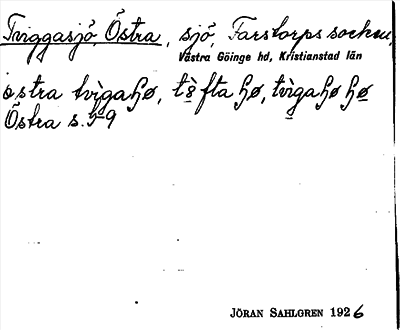 Tviggasjö, Östra, sjö, Farstorps socken,
Västra Göinge hd, Kristianstad län
östra tvigahø, t8fta hø, tvigahø hø
Östra s. 59
JÖRAN SAHLGREN 1926